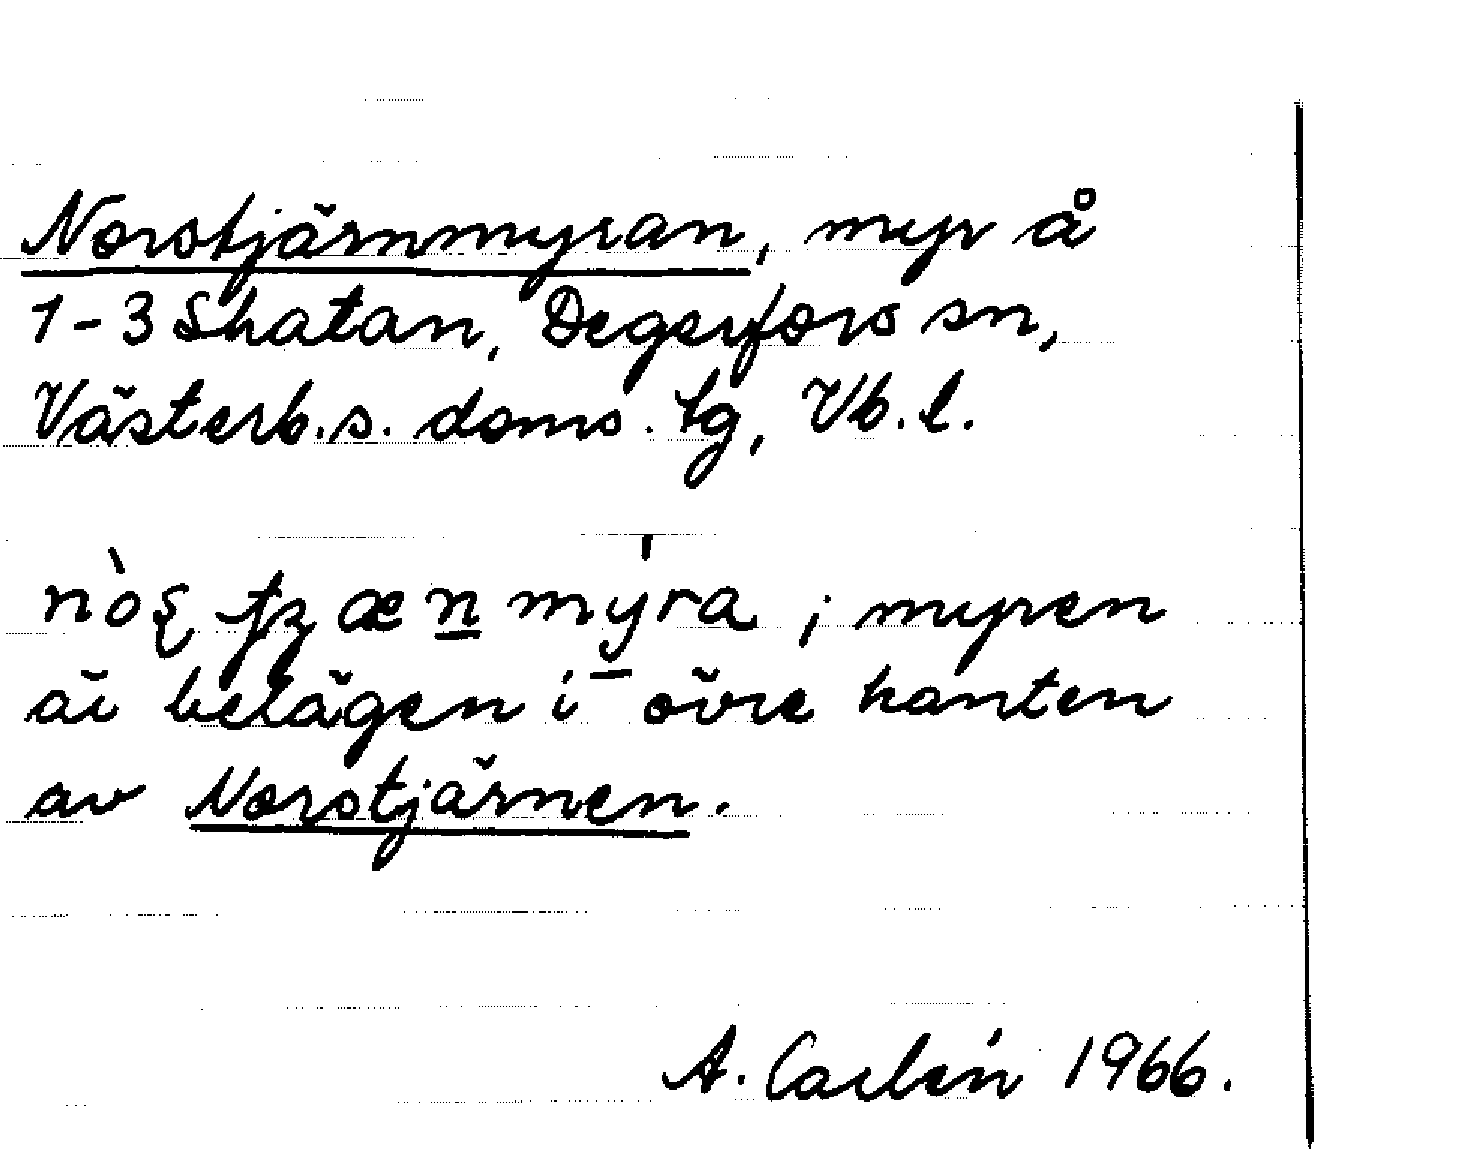 Norstjärnmyran, myr å
1-3 Skatan, Degerfors sn,
Västerb.s. doms. lg, Vb. l.
myra; myren
är belägen i övre kanten
av Norstjärnen.
A. Carlén 1966.